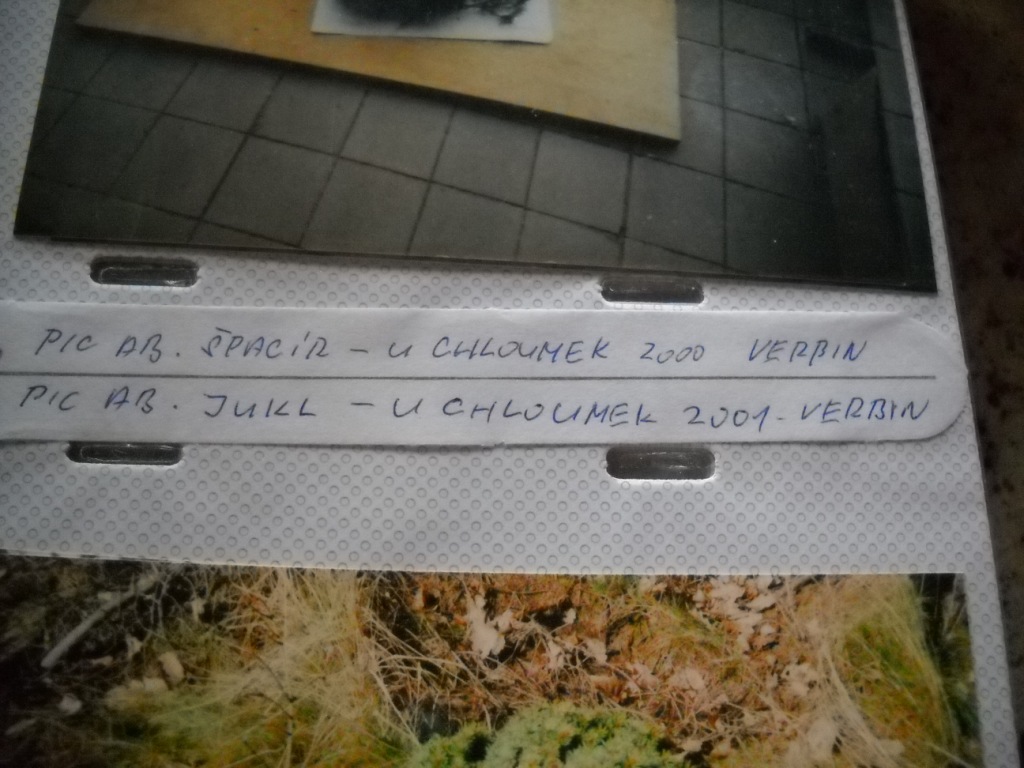 PIC AB. ŠPACÍR - U CHLOUMEK 2000 VERBIN
PIC AB. JUKL - U CHLOUMEK 2001 - VERBIN